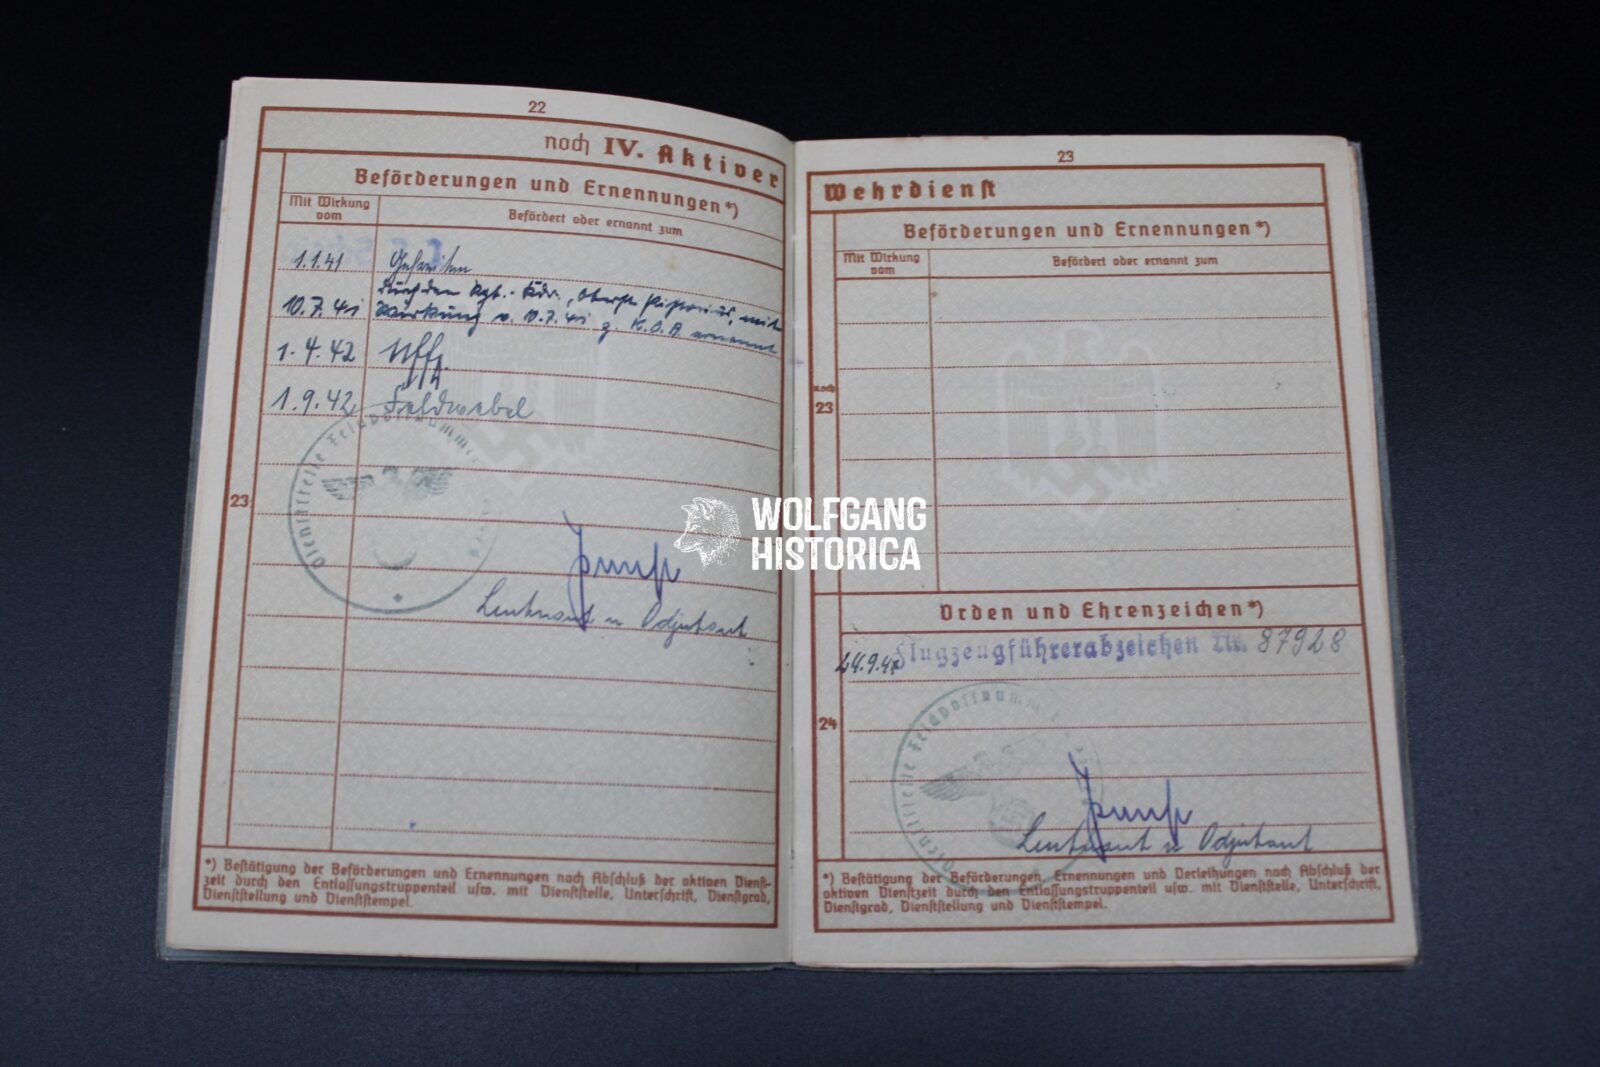 22
noch IV. Aktiver
Beförderungen und Ernennungen*)
Mit Wirkung
vom
Befördert oder ernannt zum
1.1.41 Gefreiten
durch den Rgt.-Kdr., Oberst Pistorius, mit
10.7.41 Wirkung v. 10.7.41 z. K.O.A ernannt
1.4.42 Uffz.
1.9.42 Feldwebel
Dienststelle Feldpostnummer
23
Leutnant u Adjutant
*) Bestätigung der Beförderungen und Ernennungen nach Abschluß der aktiven Dienst-
zeit durch den Entlassungstruppenteil usw. mit Dienststelle, Unterschrift, Dienstgrad,
Dienststellung und Dienststempel.
WOLFGANG
HISTORICA
23
Wehrdienst
Beförderungen und Ernennungen*)
Mit Wirkung
vom
Befördert oder ernannt zum
noch
23
Orden und Ehrenzeichen*)
Flugzeugführerabzeichen Nr. 87928
24
Dienststelle Feldpostnummer
Leutnant u Adjutant
*) Bestätigung der Beförderungen, Ernennungen und Verleihungen nach Abschluß der
aktiven Dienstzeit durch den Entlassungstruppenteil usw. mit Dienststelle, Unterschrift,
Dienstgrad, Dienststellung und Dienststempel.